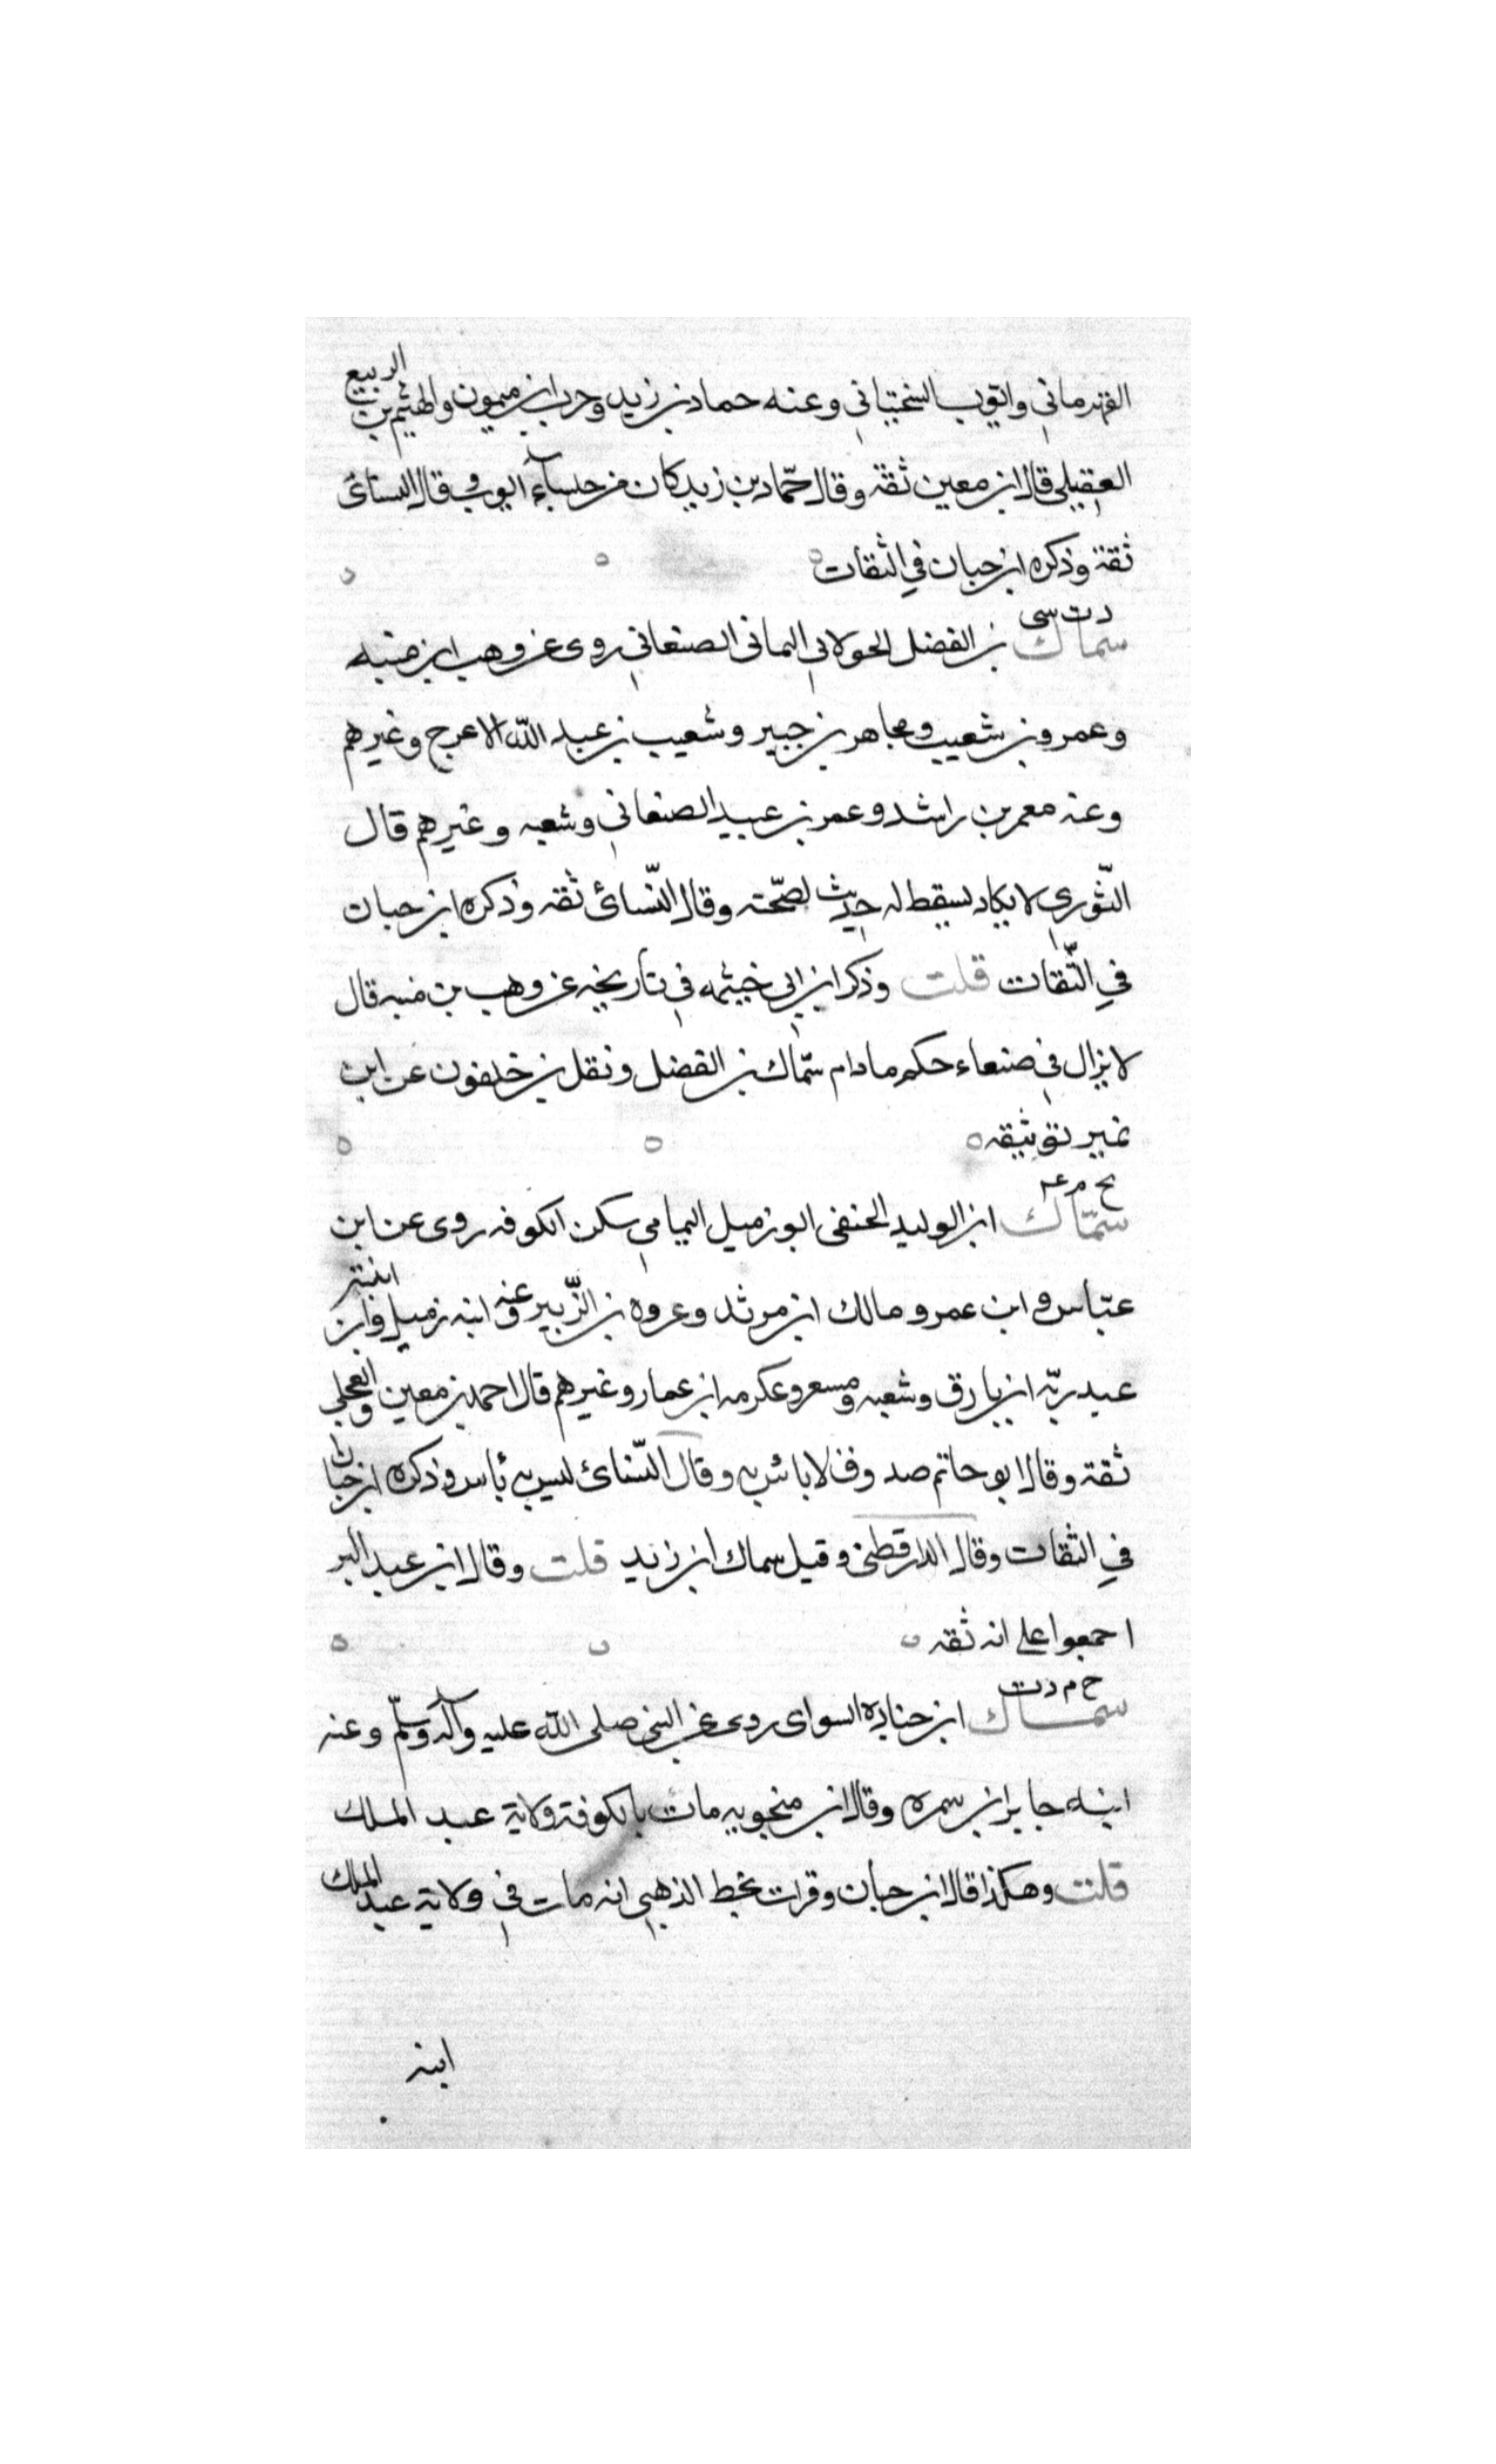 القهرماني وايوب السختياني وعنه حماد بن زيد وحرب ابن ميمون والهيثم بن الربيع
العقيلي قال ابن معين ثقة وقال حمّاد بن زيد كان من جلسآء ايوب وقال النسائ
ثقة وذكره ابن حبان في الثقات
د ت سى
سماك بن الفضل الخولاني اليماني الصنعاني روى عن وهب ابن منبه
وعمرو بن شعيب ومجاهر بن جبير وشعيب بن عبد الله الاعرج وغيرهم
وعنه معمر بن راشد وعمر بن عبيد الصنعاني وشعبه وغيرهم قال
الثّوري لا يكاد يسقط له حديث لصحّته وقال النّسائ ثقه وذكره ابن حبان
في الثّقات قلت وذكر ابن ابي خيثمه في تاريخه عن وهب بن منبه قال
لا يزال في صنعاء حكم مادام سمّاك بن الفضل ونقل بن خلفون عن ابن
نمير توثيقه
بخ م عـ
سمّاك ابن الوليد الحنفى ابو زميل اليمامي سكن الكوفه روى عن ابن
عبّاس و ابن عمر و مالك ابن مرثد وعروه بن الزّبير وعنه ابنه زميل وابن ابنته
عبد ربّه ابن بارق وشعبه ومسعر وعكرمه ابن عمار وغيرهم قال احمد بن معين والعجلي
ثقة وقال ابو حاتم صدوق لا باس به وقال النّسائ ليس به بأس وذكره ابن حبان
في الثقات وقال الدارقطنى وقيل سماك ابن زيد قلت وقال ابن عبد البر
اجمعوا على انه ثقه
خ م د ت
سماك ابن جناده السواى روى عن النبي صلى الله عليه وآله وسلّم وعنه
ابنه جابر ابن سمره وقال ابن منجويه مات بالكوفة ولاية عبد الملك
قلت وهكذا قال ابن حبان وقرات بخط الذهبي انه مات في ولاية عبد الملك
ابنه